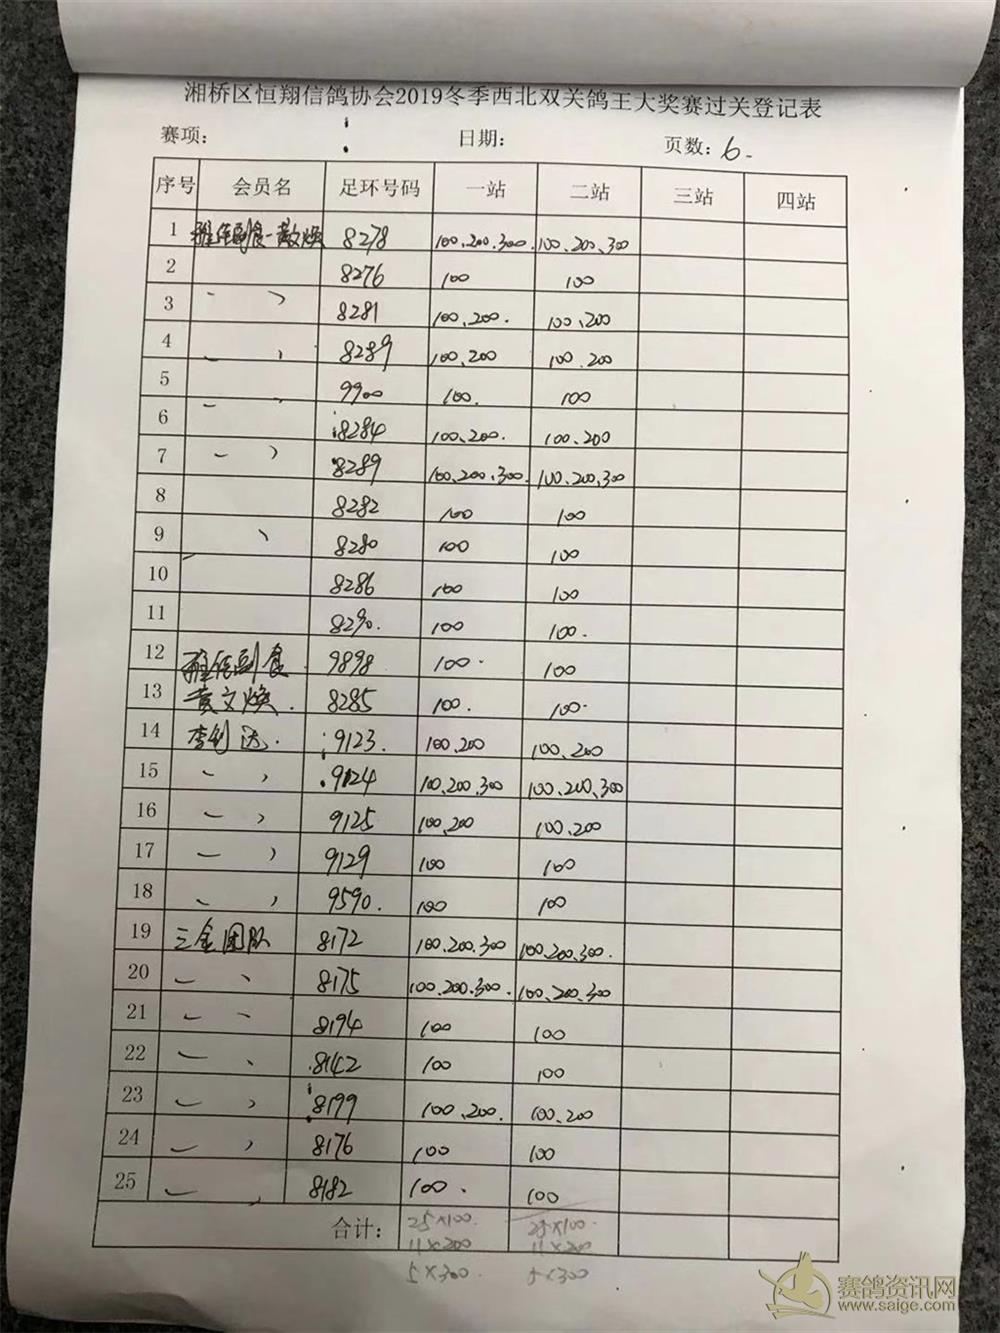 湘桥区恒翔信鸽协会2019冬季西北双关鸽王大奖赛过关登记表
赛项: 日期: 页数: 6.
序号 会员名 足环号码 一站 二站 三站 四站
1 雅佳副食-黄文焕 8278 100.200.300. 100.200.300
2 8276 100 100
3 8281 100.200. 100.200
4 8289 100.200 100.200
5 9900 100. 100
6 8284 100.200. 100.200
7 8289 100.200.300 100.200.300
8 8282 100 100
9 8280 100 100
10 8286 100 100
11 8290. 100 100.
12 雅佳副食 9898 100. 100
13 黄文焕. 8285 100. 100.
14 李利达. 9123. 100,200 100.200
15 9124 100.200.300 100.200.300
16 9125 100,200 100.200
17 9129 100 100
18 9590. 100 100
19 三金团队 8172 100.200.300 100.200.300.
20 8175 100.200.300. 100.200.300
21 8194 100 100
22 8142 100 100
23 8199 100.200. 100.200
24 8176 100 100
25 8182 100. 100
合计: 25×100. 25×100.
11×200 11×200
5×300. 5×300
赛鸽资讯网
www.saige.com